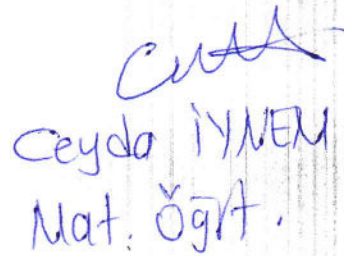 Ceyda İYNEM
Mat. Öğrt.